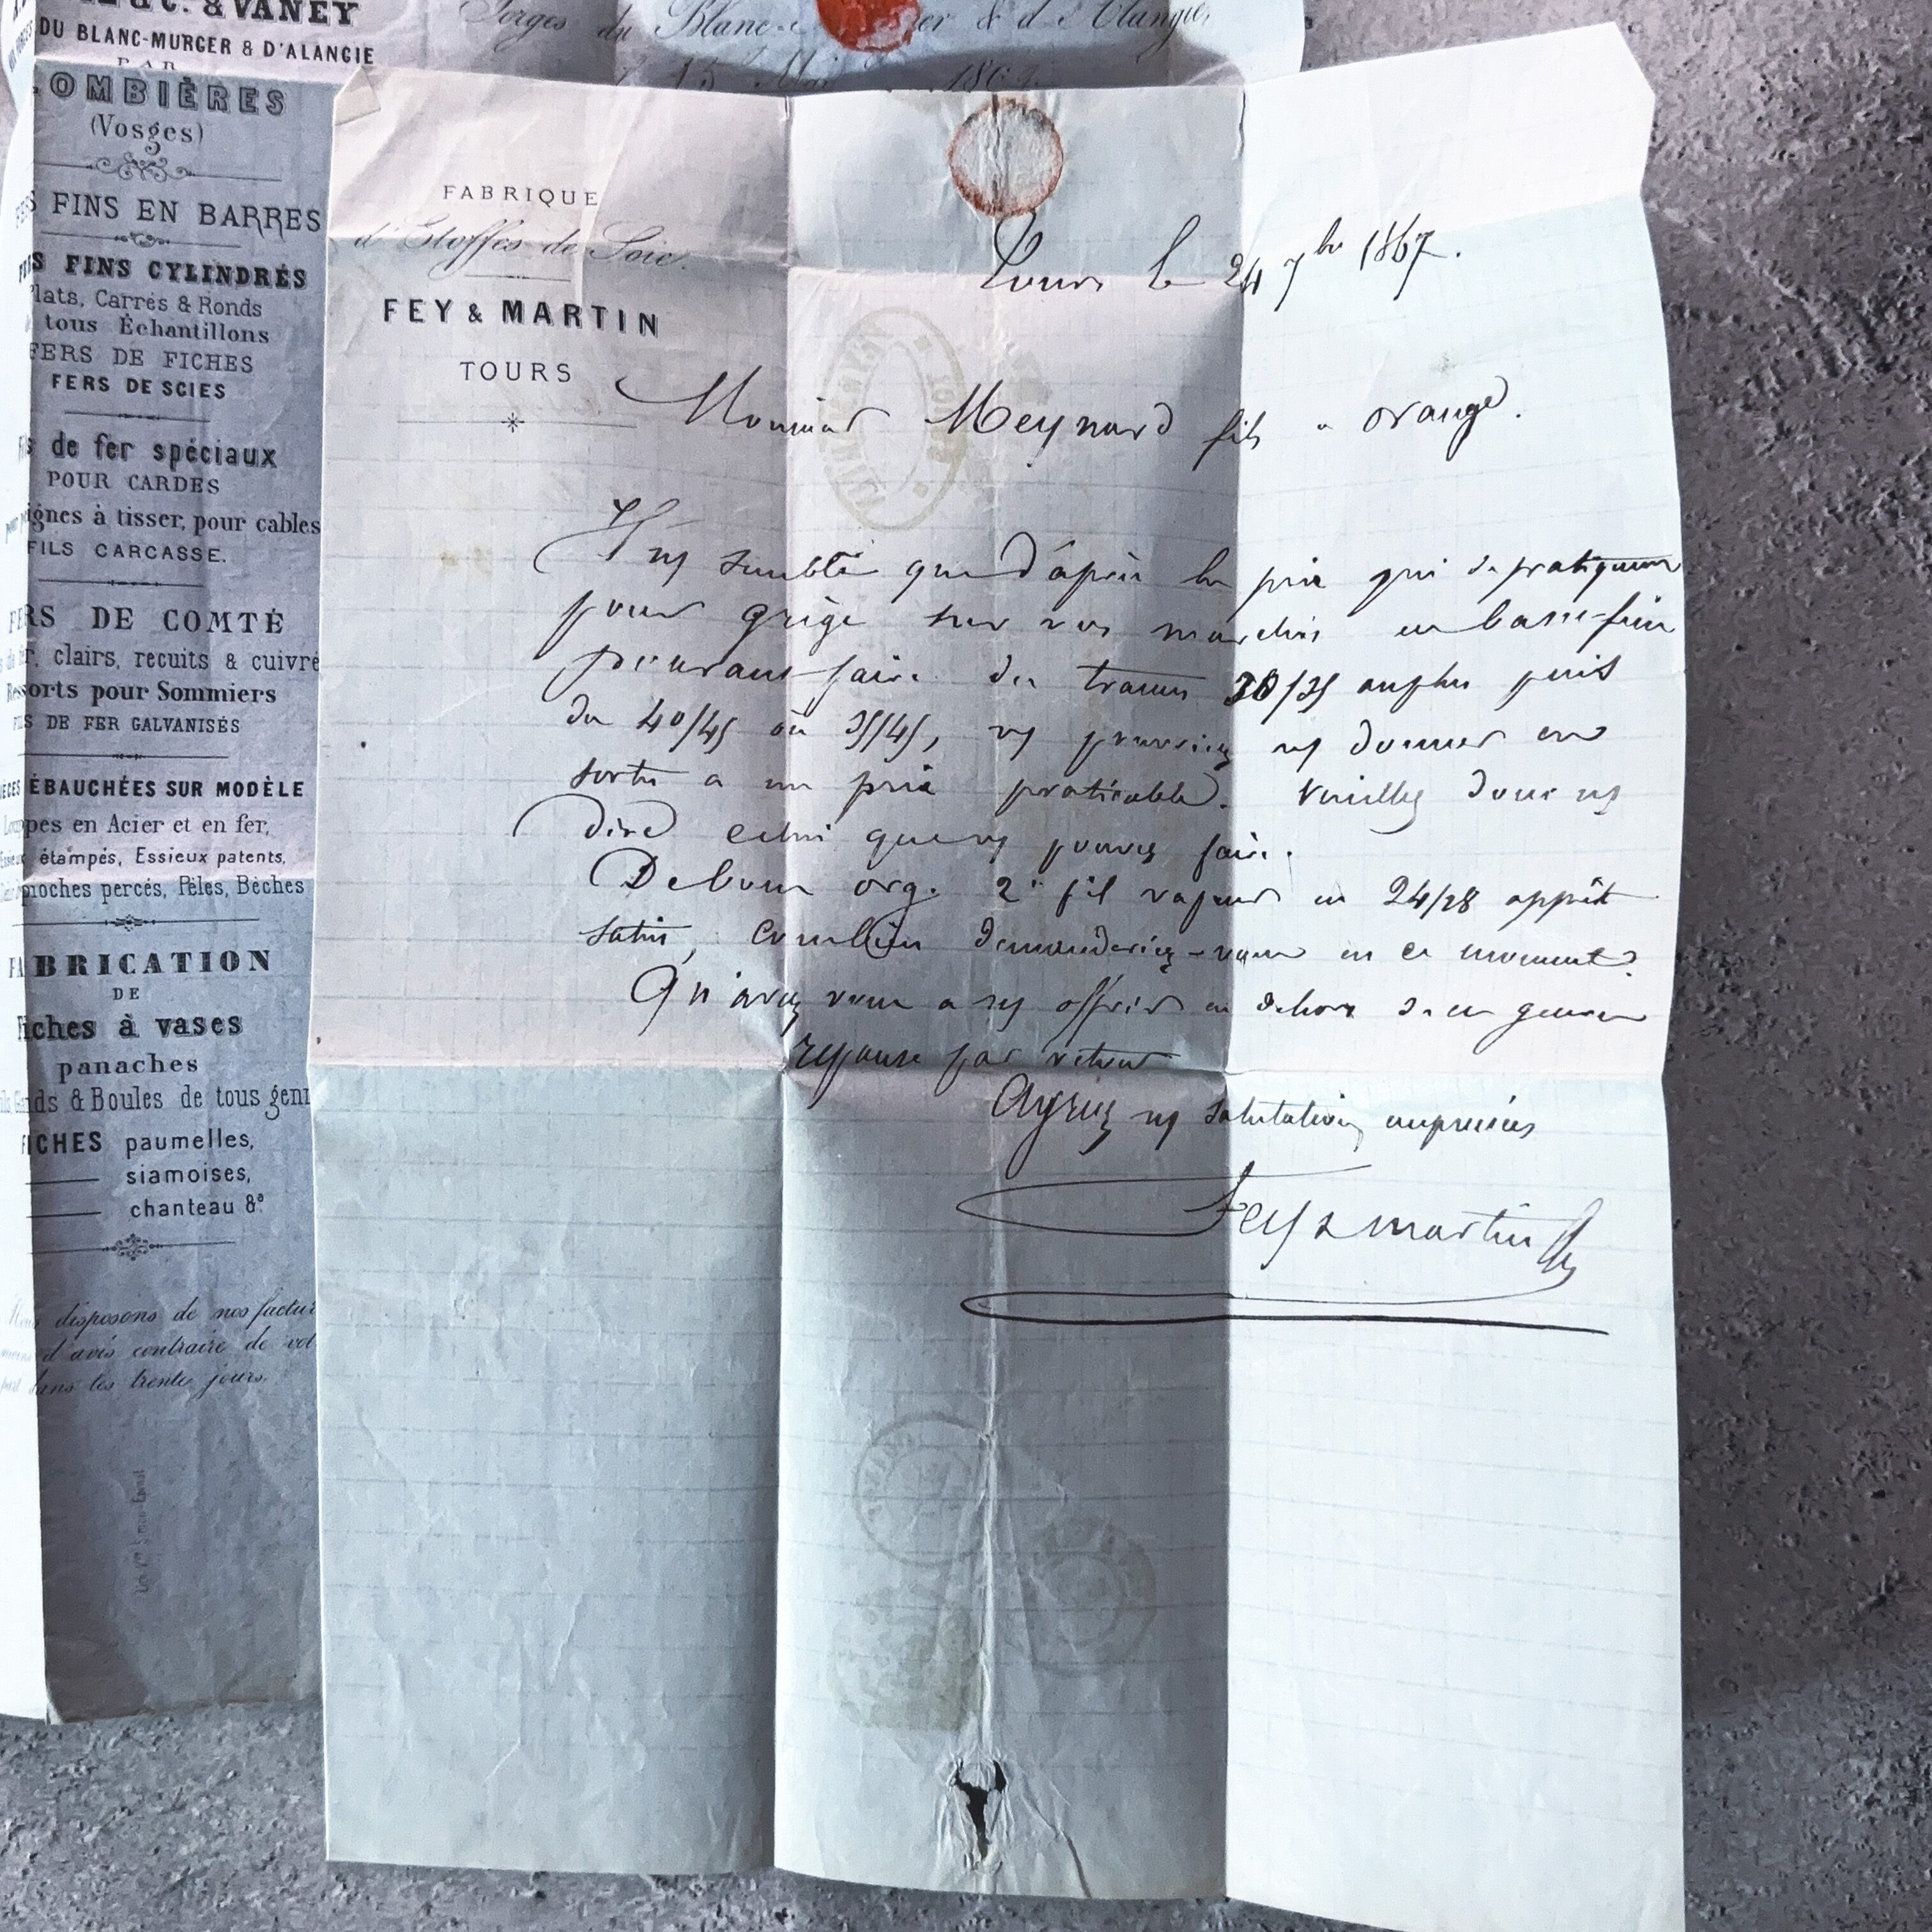 & VANEY
DU BLANC-MURGER & D'ALANGIE
PAR
OMBIÈRES
(Vosges)
FINS EN BARRES
FINS CYLINDRÉS
Carrés & Ronds
tous Échantillons
FERS DE FICHES
FERS DE SCIES
de fer spéciaux
POUR CARDES
à tisser, pour cables
FILS CARCASSE.
DE COMTÉ
clairs, recuits & cuivré
pour Sommiers
DE FER GALVANISÉS
ÉBAUCHÉES SUR MODÈLE
en Acier et en fer,
étampés, Essieux patents,
percés, Pèles, Bèches
BRICATION
DE
iches à vases
panaches
& Boules de tous genr
FICHES paumelles,
siamoises,
chanteau &ª
disposons de nos factur
d'avis contraire de vot
dans les trente jours.
Forges du Blanc & d'Alangie,
15 Mai 186
FABRIQUE
d'Etoffes de Soie.
FEY & MARTIN
TOURS
Tours le 24 7bre 1867.
Monsieur Meynard fils à Orange.
Il ns semble que d'après les prix qui se pratiquent
pour grège sur vos marchés en
pouvant faire des trames 30/35
du 40/45 ou 35/45, ns donner en
sorte à un prix praticable. Veuillez donc ns
dire celui que vs pouvez faire.
De bon org. 2 fil vapeur en 24/28 apprêt
satin, combien demanderiez-vous en ce moment?
Qu'avez vous à ns offrir en dehors de ce genre
réponse par retour
Agréez ns salutations empressées
Fey & Martin